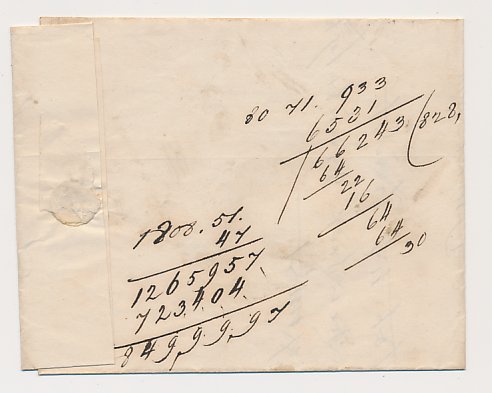 80 71. 933
6531
66243 (828,
64
22
16
64
64
30
1808.51.
47
1265957
723404.
8499997